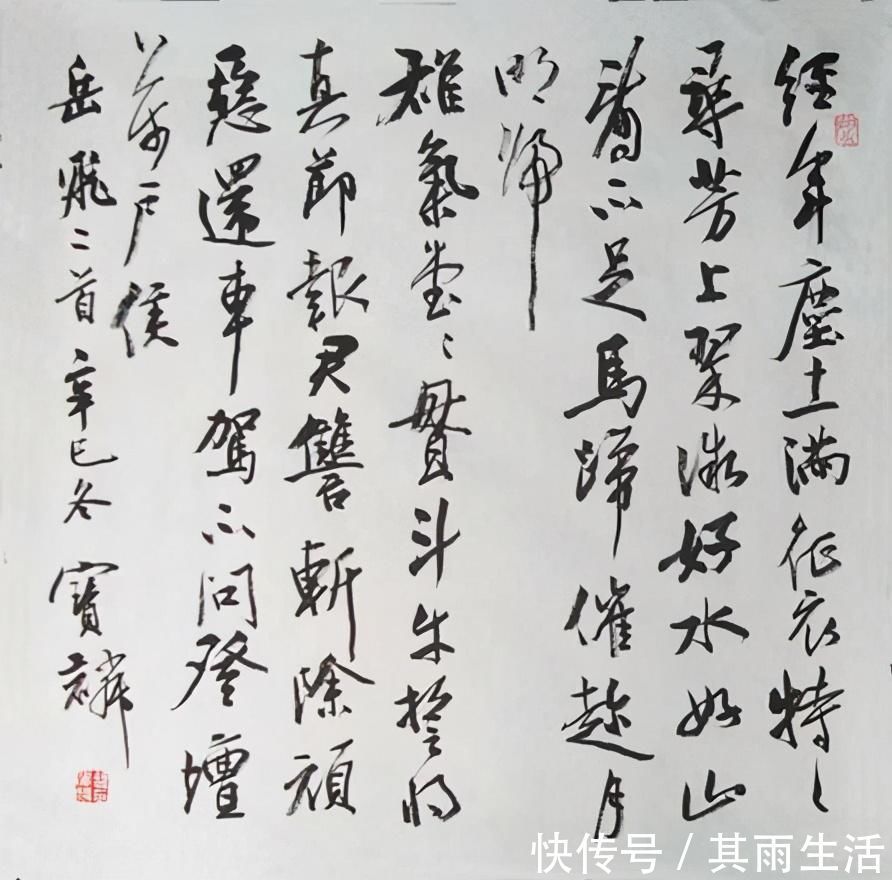 經年塵土滿征衣特〻
尋芳上翠微好水好山
看不足馬蹄催趁月
明歸
雄氣堂〻貫斗牛誓將
真節報君讐斬除頑
惡還車駕不問登壇
萬户侯
岳飛二首辛巳冬寶麟
快传号 / 其雨生活